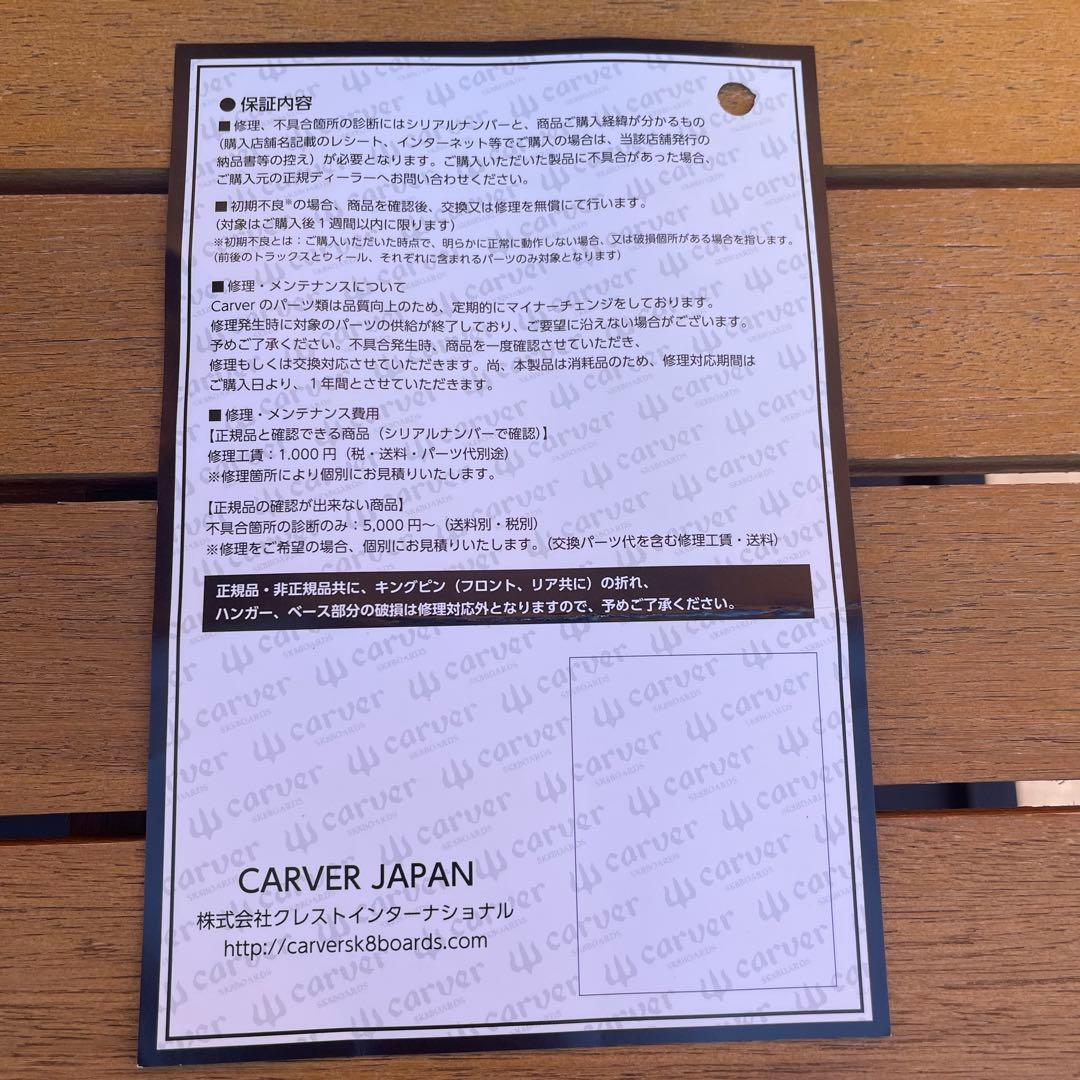 ● 保証内容
■ 修理、不具合箇所の診断にはシリアルナンバーと、商品ご購入経緯が分かるもの
(購入店舗名記載のレシート、インターネット等でご購入の場合は、当該店舗発行の
納品書等の控え) が必要となります。ご購入いただいた製品に不具合があった場合、
ご購入元の正規ディーラーへお問い合わせください。
■ 初期不良※の場合、商品を確認後、交換又は修理を無償にて行います。
(対象はご購入後1週間以内に限ります)
※初期不良とは：ご購入いただいた時点で、明らかに正常に動作しない場合、又は破損個所がある場合を指します。
(前後のトラックスとウィール、それぞれに含まれるパーツのみ対象となります)
■ 修理・メンテナンスについて
Carver のパーツ類は品質向上のため、定期的にマイナーチェンジをしております。
修理発生時に対象のパーツの供給が終了しており、ご要望に沿えない場合がございます。
予めご了承ください。不具合発生時、商品を一度確認させていただき、
修理もしくは交換対応させていただきます。尚、本製品は消耗品のため、修理対応期間は
ご購入日より、1年間とさせていただきます。
■ 修理・メンテナンス費用
【正規品と確認できる商品（シリアルナンバーで確認）】
修理工賃：1.000 円（税・送料・パーツ代別途）
※修理箇所により個別にお見積りいたします。
【正規品の確認が出来ない商品】
不具合箇所の診断のみ：5,000 円〜（送料別・税別）
※修理をご希望の場合、個別にお見積りいたします。(交換パーツ代を含む修理工賃・送料)
正規品・非正規品共に、キングピン（フロント、リア共に）の折れ、
ハンガー、ベース部分の破損は修理対応外となりますので、予めご了承ください。
CARVER JAPAN
株式会社クレストインターナショナル
http://carversk8boards.com